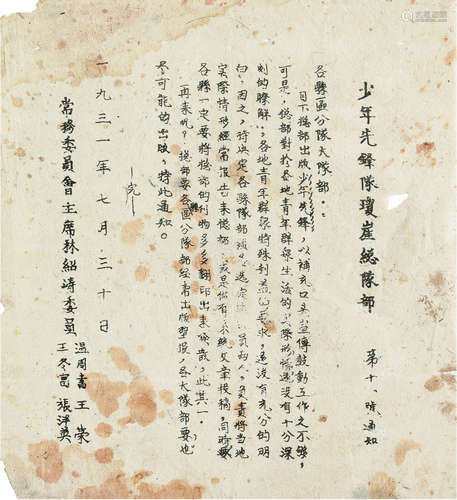 少年先鋒隊瓊崖總隊部
第十一號通知
各縣區分隊大隊部：
目下總部出版少年先鋒，以補充口頭宣傳鼓動工作之不夠，
可是，總部對於各地青年群眾生活的實際形情還沒有十分深
刻的瞭解，各地青年群眾特殊利益的要求，還沒有充分的明
白，因之，特決定各縣隊部須選定 員兩人，負責將当地
实際情形經常报告來總部，或是做有系統文章投稿，同時要
各縣一定要將總部的刊物多多翻印出來條散，此其一。
再來呢？總部要各區分隊部宣書出版壁報，各大隊部要也
尽可能的出版，特此通知。
完
一九三一年七月三十日
常務委員會主席林紹 委員
溫周書 王荣
王冬
張洋英